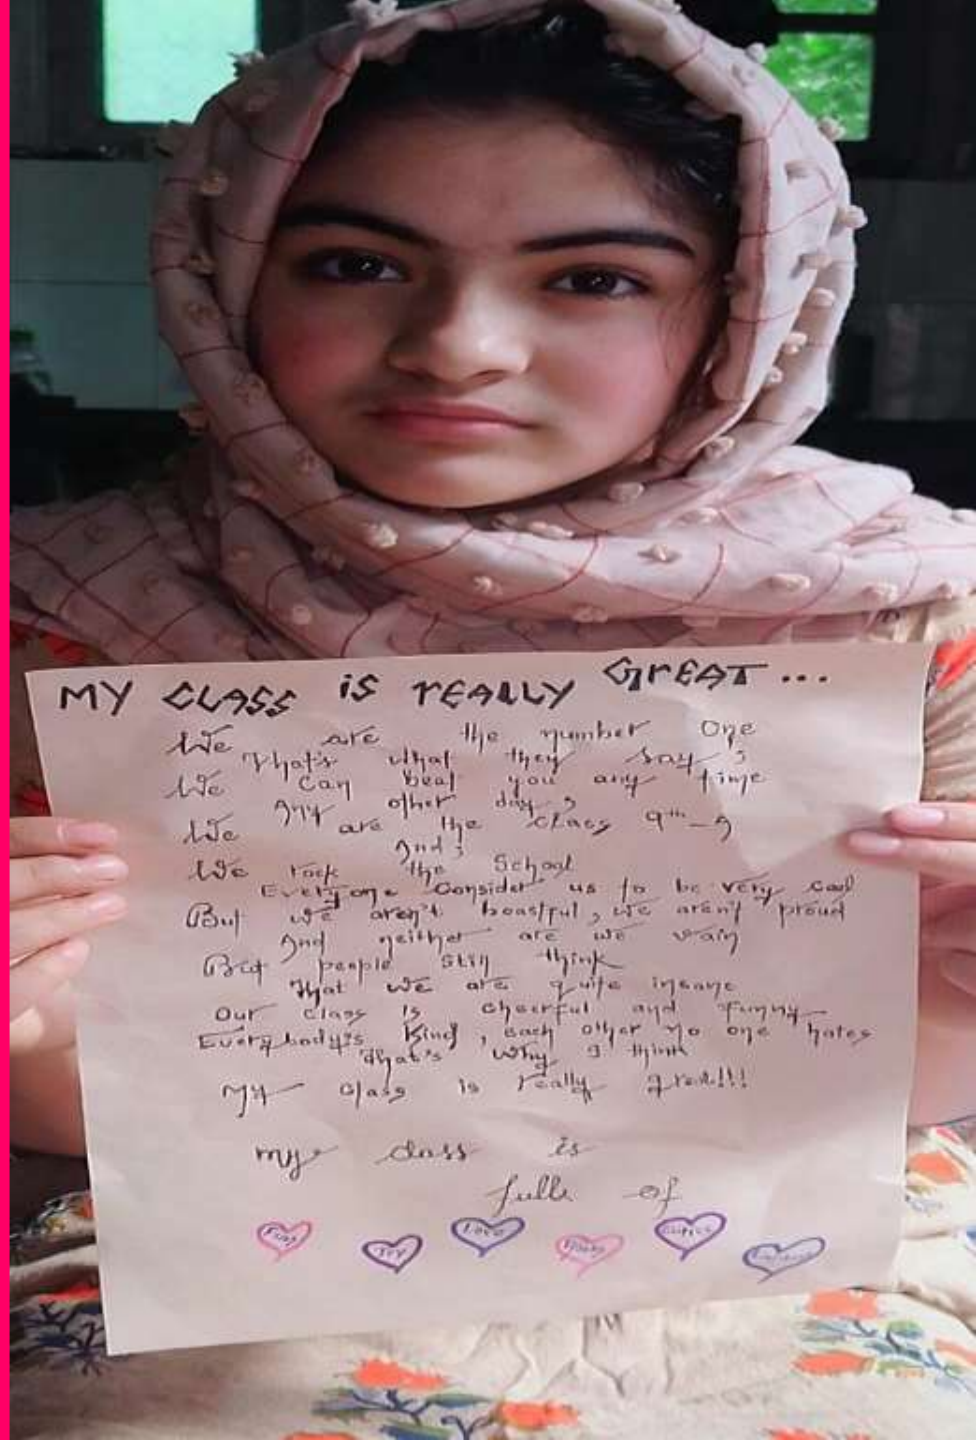 MY CLASS is rEALLY GrEAT...
We are the number One
That's what they say;
We Can beat you any time
Any other day,
We are the class 9th_A
And;
We rock the School
Everyone Consider us to be very cool
But we aren't boastful, we aren't proud
And neither are we vain
But people still think
That we are quite insane
Our class is cheerful and funny
Everybody's Kind, each other no one hates
that's why I think
My class is really great!!!
my class is
full of
Fun
Joy
Love